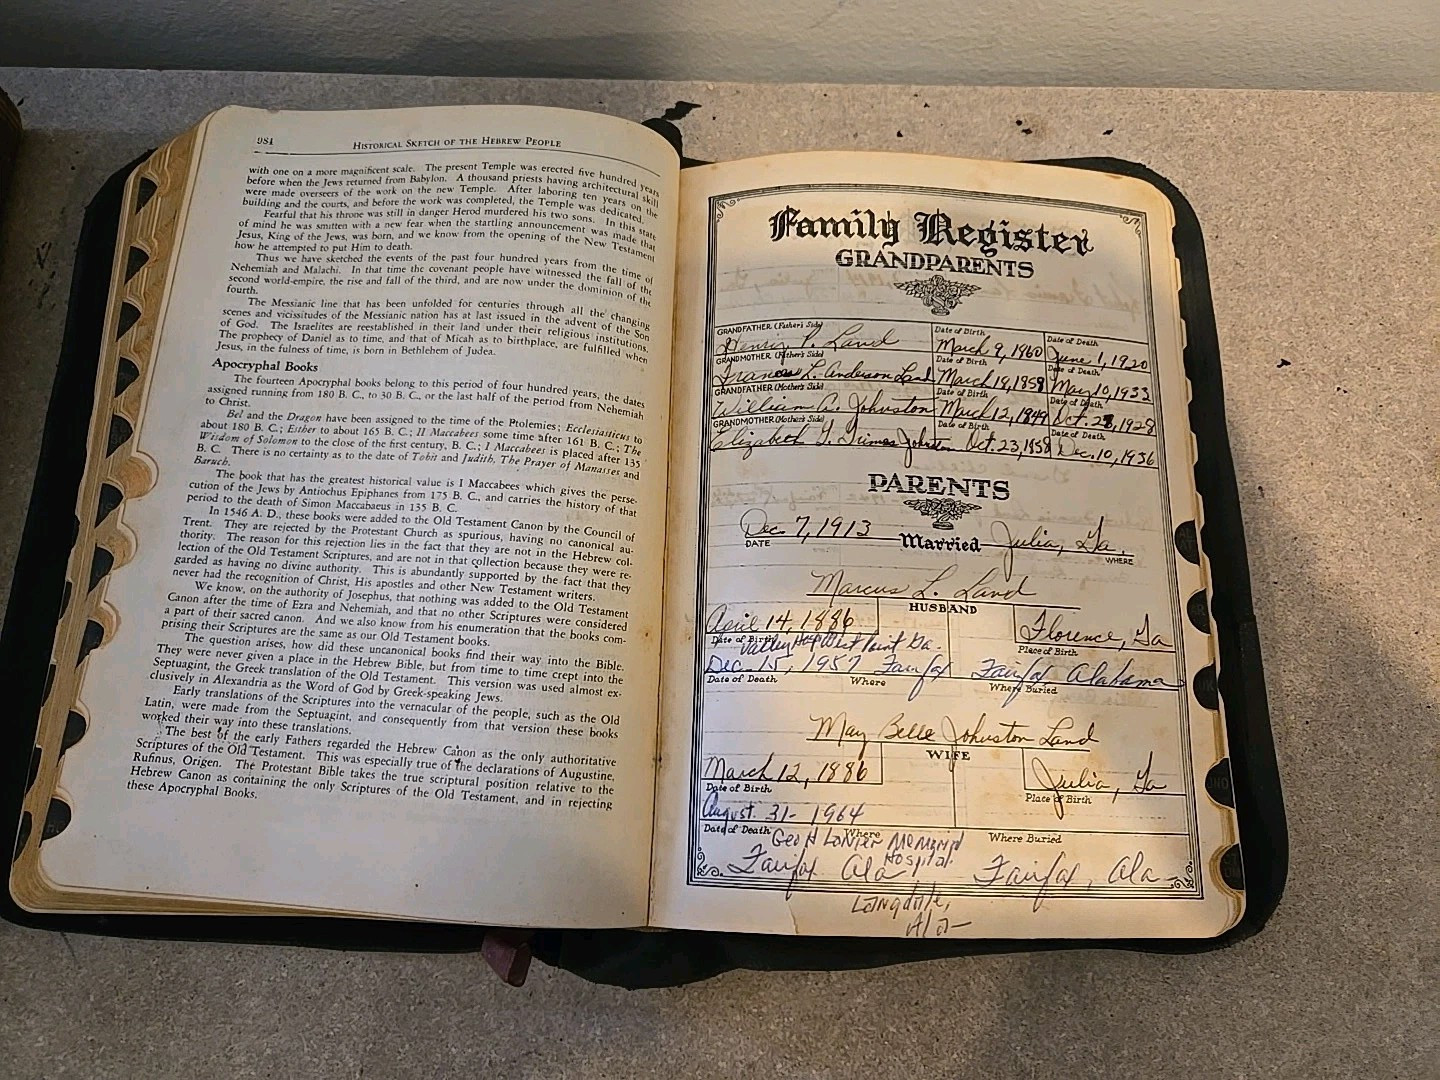 984
HISTORICAL SKETCH OF THE HEBREW PEOPLE
with one on a more magnificent scale. The present Temple was erected five hundred years
before when the Jews returned from Babylon. A thousand priests having architectural skill
were made overseers of the work on the new Temple. After laboring ten years on the
building and the courts, and before the work was completed, the Temple was dedicated.
Fearful that his throne was still in danger Herod murdered his two sons. In this state
of mind he was smitten with a new fear when the startling announcement was made that
Jesus, King of the Jews, was born, and we know from the opening of the New Testament
how he attempted to put Him to death.
Thus we have sketched the events of the past four hundred years from the time of
Nehemiah and Malachi. In that time the covenant people have witnessed the fall of the
second world-empire, the rise and fall of the third, and are now under the dominion of the
fourth.
The Messianic line that has been unfolded for centuries through all the changing
scenes and vicissitudes of the Messianic nation has at last issued in the advent of the Son
of God. The Israelites are reestablished in their land under their religious institutions.
The prophecy of Daniel as to time, and that of Micah as to birthplace, are fulfilled when
Jesus, in the fulness of time, is born in Bethlehem of Judea.
Apocryphal Books
The fourteen Apocryphal books belong to this period of four hundred years, the dates
assigned running from 180 B. C., to 30 B. C., or the last half of the period from Nehemiah
to Christ.
Bel and the Dragon have been assigned to the time of the Ptolemies; Ecclesiasticus to
about 180 B. C.; Esther to about 165 B. C.; II Maccabees some time after 161 B. C.; The
Wisdom of Solomon to the close of the first century, B. C.; I Maccabees is placed after 135
B. C. There is no certainty as to the date of Tobit and Judith, The Prayer of Manasses and
Baruch.
The book that has the greatest historical value is I Maccabees which gives the perse-
cution of the Jews by Antiochus Epiphanes from 175 B. C., and carries the history of that
period to the death of Simon Maccabaeus in 135 B. C.
In 1546 A. D., these books were added to the Old Testament Canon by the Council of
Trent. They are rejected by the Protestant Church as spurious, having no canonical au-
thority. The reason for this rejection lies in the fact that they are not in the Hebrew col-
lection of the Old Testament Scriptures, and are not in that collection because they were re-
garded as having no divine authority. This is abundantly supported by the fact that they
never had the recognition of Christ, His apostles and other New Testament writers.
We know, on the authority of Josephus, that nothing was added to the Old Testament
Canon after the time of Ezra and Nehemiah, and that no other Scriptures were considered
a part of their sacred canon. And we also know from his enumeration that the books com-
prising their Scriptures are the same as our Old Testament books.
The question arises, how did these uncanonical books find their way into the Bible.
They were never given a place in the Hebrew Bible, but from time to time crept into the
Septuagint, the Greek translation of the Old Testament. This version was used almost ex-
clusively in Alexandria as the Word of God by Greek-speaking Jews.
Early translations of the Scriptures into the vernacular of the people, such as the Old
Latin, were made from the Septuagint, and consequently from that version these books
worked their way into these translations.
The best of the early Fathers regarded the Hebrew Canon as the only authoritative
Scriptures of the Old Testament. This was especially true of the declarations of Augustine,
Rufinus, Origen. The Protestant Bible takes the true scriptural position relative to the
Hebrew Canon as containing the only Scriptures of the Old Testament, and in rejecting
these Apocryphal Books.
Family Register
GRANDPARENTS
GRANDFATHER (Father's Side) Date of Birth Date of Death
Henry P. Land March 9, 1860 June 1, 1920
GRANDMOTHER (Father's Side) Date of Birth Date of Death
Frances L. Anderson Land March 18, 1859 May 10, 1933
GRANDFATHER (Mother's Side) Date of Birth Date of Death
William A. Johnston March 12, 1849 Oct. 28, 1928
GRANDMOTHER (Mother's Side) Date of Birth Date of Death
Elizabeth Grimes Johnston Oct. 23, 1858 Dec. 10, 1936
PARENTS
Dec 7, 1913 Married Julia, Ga.
DATE WHERE
Marcus L. Land
HUSBAND
April 14, 1886 Florence, Ga
Date of Birth Place of Birth
Valley Hosp West Point Ga.
Dec. 15, 1957 Fairfax Fairfax Alabama
Date of Death Where Where Buried
May Belle Johnston Land
WIFE
March 12, 1886 Julia, Ga
Date of Birth Place of Birth
August 31- 1964
Date of Death Where Where Buried
Geo H Lanier Memorial
Hospital
Fairfax Ala Fairfax, Ala
Langdale,
Ala-